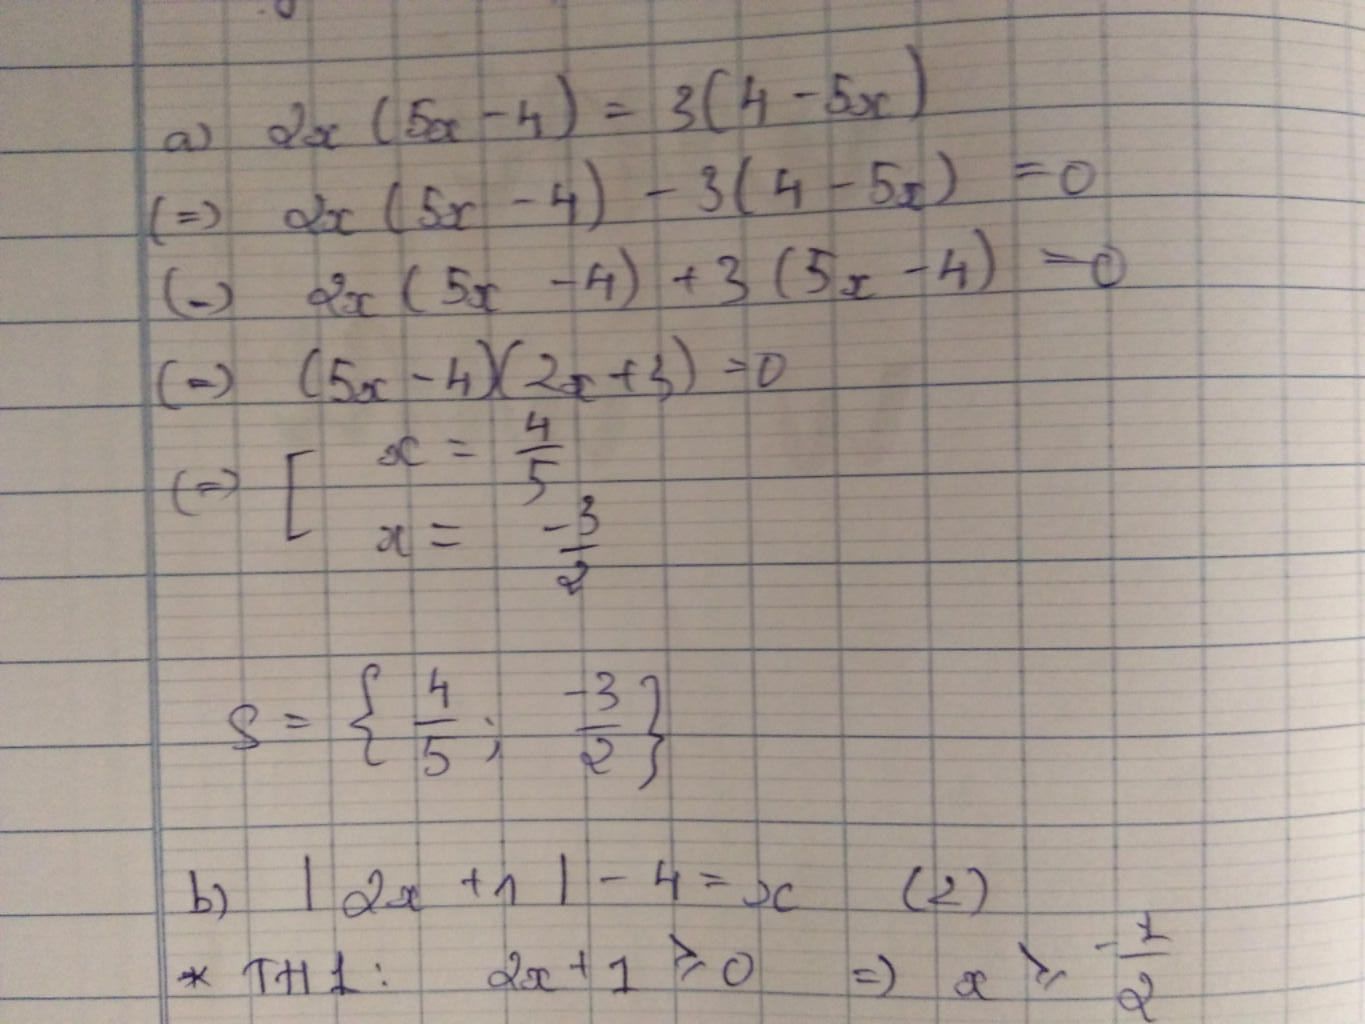 a) 2x (5x - 4) = 3(4 - 5x)
(=) 2x (5x - 4) - 3(4 - 5x) = 0
(=) 2x (5x - 4) + 3 (5x - 4) = 0
(=) (5x - 4)(2x + 3) = 0
(=) [ x = 4/5
x = -3/2
S = { 4/5 ; -3/2 }
b) | 2x + 1 | - 4 = x (2)
* TH1 : 2x + 1 ⩾ 0 =) x ⩾ -1/2